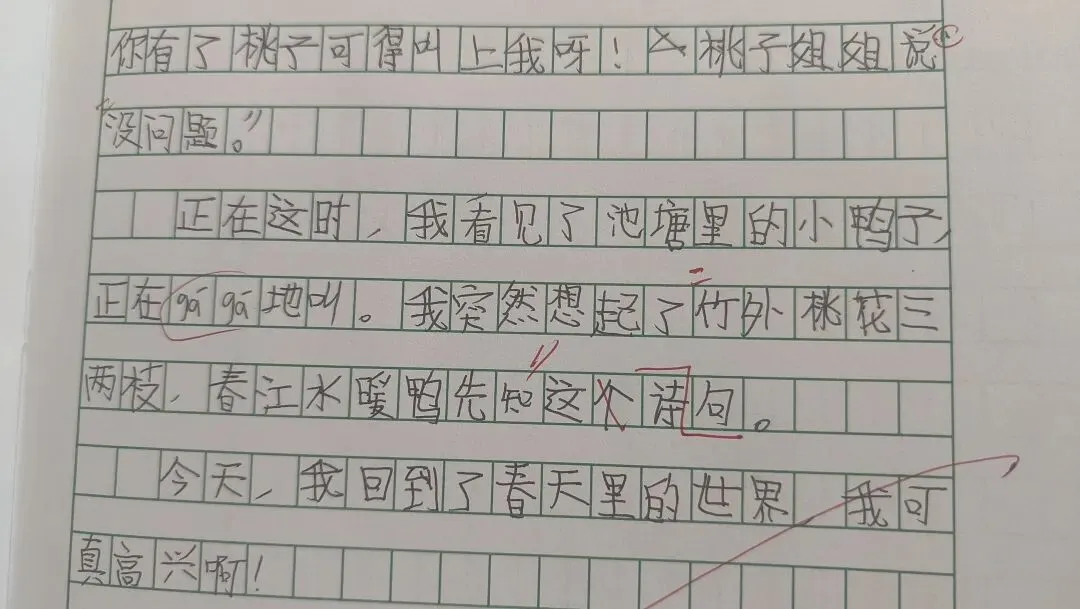 你有了桃子可得叫上我呀！”桃子姐姐说：
“没问题。”
正在这时，我看见了池塘里的小鸭子，
正在gá gá地叫。我突然想起了“竹外桃花三
两枝，春江水暖鸭先知”这个诗句。
今天，我回到了春天里的世界 我可
真高兴啊！